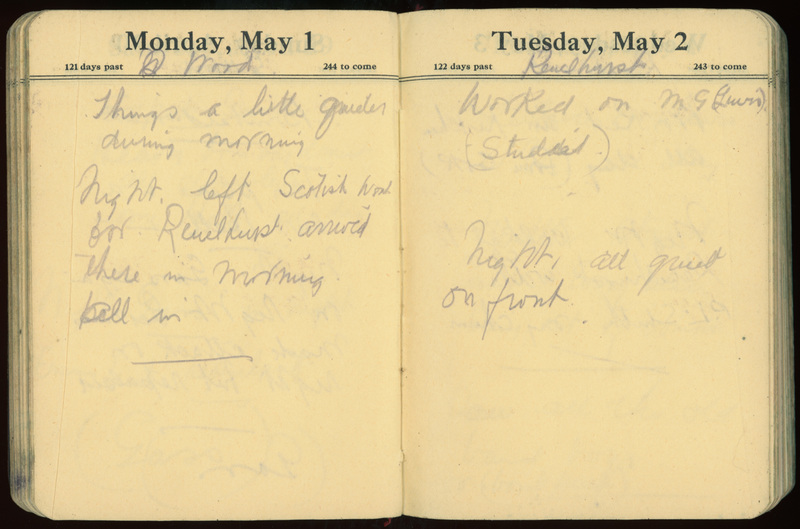 Monday, May 1
121 days past
Wood
244 to come
Things a little quieter
during morning
Night. left Scotish Wood
for Renelhurst arrived
there in morning
fell in
Tuesday, May 2
122 days past
Renelhurst
243 to come
Worked on M G (Lewis)
(Studied)
Night, all quiet
on front